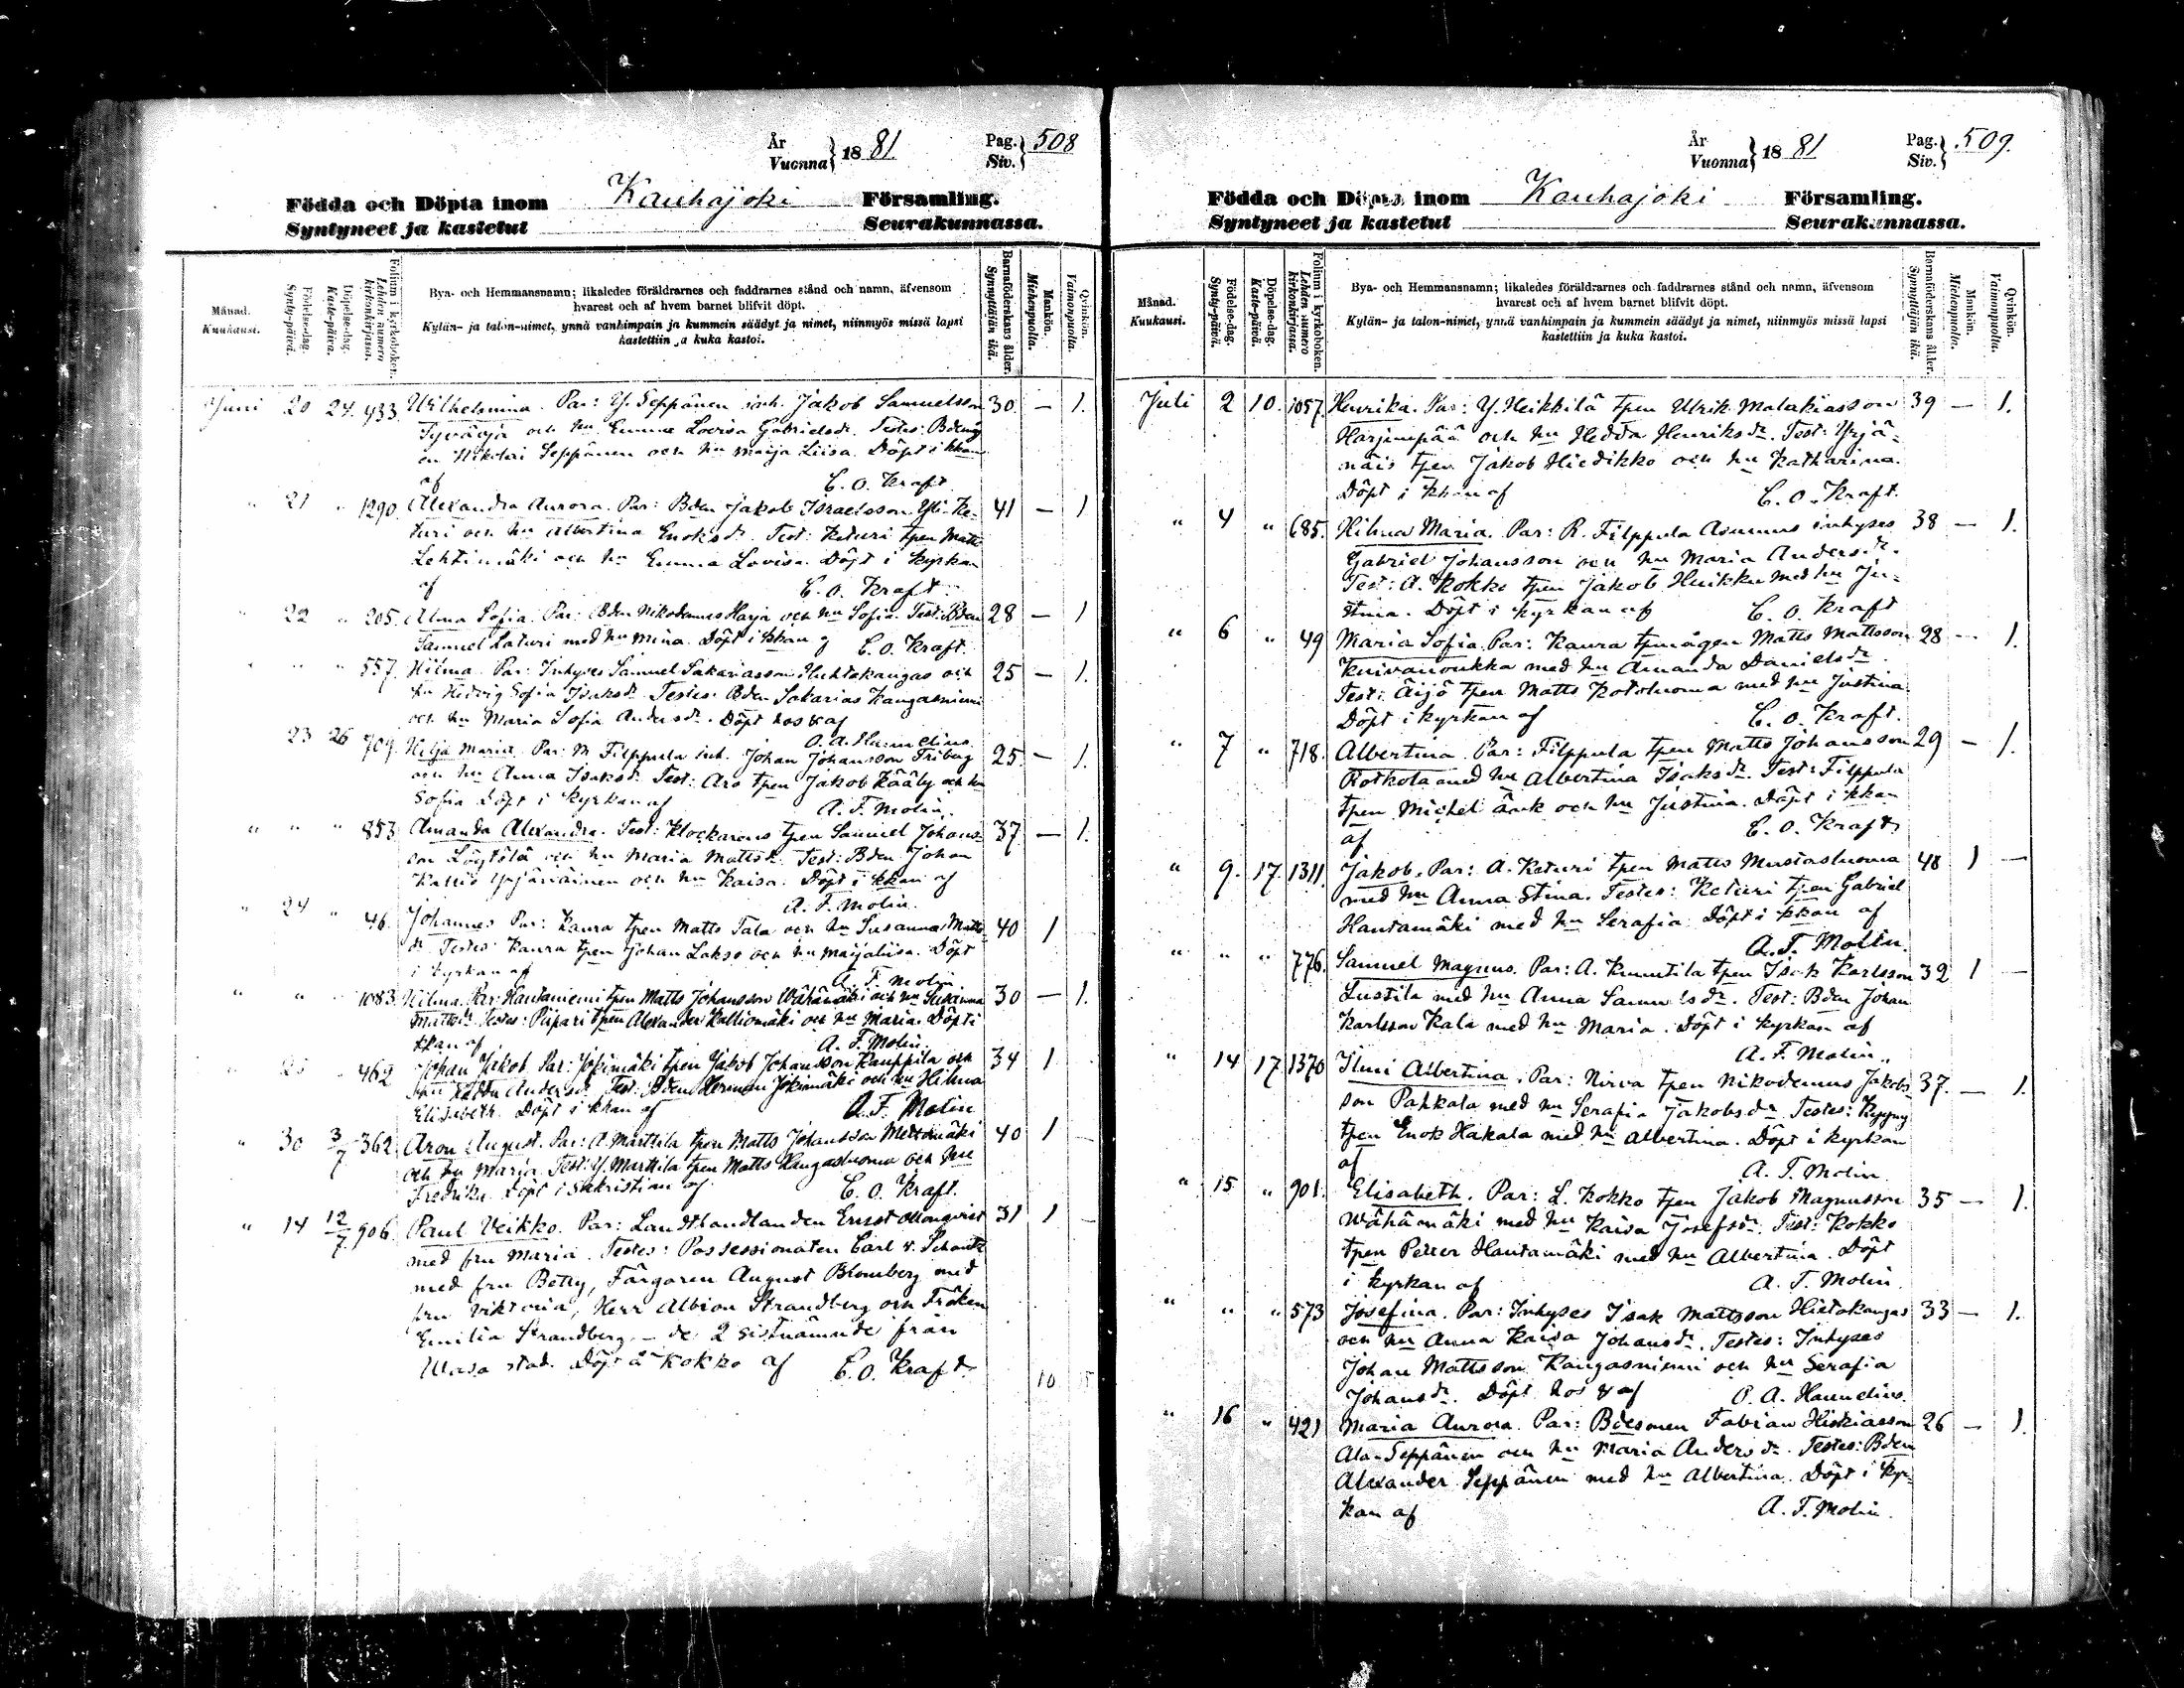 År
Vuonna } 1881.
Pag.
Siv. } 508
Födda och Döpta inom Kauhajoki Församling.
Syntyneet ja kastetut Seurakunnassa.
Månad.
Kuukausi.
Födelse-dag.
Synty-päivä.
Döpelse-dag.
Kaste-päivä.
Folium i kyrkoboken.
Lehden numero kirkonkirjassa.
Bya- och Hemmansnamn; likaledes föräldrarnes och faddrarnes stånd och namn, äfvensom
hvarest och af hvem barnet blifvit döpt.
Kylän- ja talon-nimet, ynnä vanhimpain ja kummein säädyt ja nimet, niinmyös missä lapsi
kastettiin ja kuka kastoi.
Barnaföderskans ålder.
Synnyttäjän ikä.
Mankön.
Miehenpuolia.
Qvinkön.
Vaimonpuolia.
Juni 20 24. 933. Wilhelmina. Par: Y. Seppänen inh. Jakob Samuelsson 30. — 1.
och hu Emma Lovisa Gabrielsdr. Testes:
en Nikolai Seppänen och hu Maija Liisa. Döpt i kkan
af C. O. Kraft
" 21 " 1290. Alexandra Aurora. Par: Bden Jakob Israelsson Yli-Ke- 41 — 1
turi och hu Albertina Enoksdr. Test: Keturi tpen Matts
Lehtimäki och hu Emma Lovisa. Döpt i kyrkan
af C. O. Kraft.
" 22 " 205. Alma Sofia. Par: Bden Nikodemus Harja och hu Sofia. Test: Bden 28 — 1
Samuel Laturi med hu Mina. Döpt i kkan af C. O. Kraft.
" " " 557. Hilma. Par: Inhyses Samuel Sakariasson Huhtakangas och 25 — 1.
hu Hedvig Sofia Isaksdr. Testes: Bden Sakarias Kangasniemi
och hu Maria Sofia Andersdr. Döpt hos & af
O. A. Hanelius.
23 26 709. Hilja Maria. Par: M. Filppula inh. Johan Johansson Friberg 25. — 1.
och hu Anna Isaksdr. Test: Aro tpen Jakob Kääby och hu
Sofia Döpt i kyrkan af A. F. Molin.
" " " 853. Amanda Alexandra. Test: Klockarens tpen Samuel Johans- 37. — 1.
son Löytölä och hu Maria Mattsdr. Test: Bden Johan
Kallio Yrjänäinen och hu Kaisa. Döpt i kkan af
A. F. Molin.
" 24 " 46. Johannes Par: Kaura tpen Matts Tala och hu Susanna Matts- 40 1
dr. Testes: Kaura tpen Johan Lakso och hu Maijaliisa. Döpt
i kyrkan af A. F. Molin
" " " 1083. Hilma. Par: Hautaniemi tpen Matts Johansson Wähämäki och hu Susanna 30 — 1.
Mattsdr. Testes: Piipari tpen Alexander Kalliomäki och hu Maria. Döpt i
kkan af A. F. Molin.
" " 462 Johan Jakob. Par: Jokimäki tpen Jakob Johansson Kauppila och 34 1
hu Andersdr. Test: Bden Herman Jokimäki och hu Hilma
Elisabeth. Döpt i kkan af A. F. Molin
" 30 3/7 362. Aron August. Par: A. Marttila tpen Matts Johansson Mettomäki 40 1
och hu Maria. Test: Y. Marttila tpen Matts Kangasluoma och hu
Fredrika. Döpt i sakristian af C. O. Kraft.
" 14 12/7 906. Paul Veikko. Par: Landthandlanden Ernst Almqvist 31 1
med fru Maria. Testes: Possessionaten Carl v. Schantz
med fru Betty, Färgaren August Blomberg med
fru Viktoria, Herr Albion Strandberg och Fröken
Emilia Strandberg — de 2 sistnämnde från
Wasa stad. Döpt å Kokko af C. O. Kraft.
10
År
Vuonna } 1881
Pag.
Siv. } 509.
Födda och Döpta inom Kauhajoki Församling.
Syntyneet ja kastetut Seurakunnassa.
Månad.
Kuukausi.
Födelse-dag.
Synty-päivä.
Döpelse-dag.
Kaste-päivä.
Folium i kyrkoboken.
Lehden numero kirkonkirjassa.
Bya- och Hemmansnamn; likaledes föräldrarnes och faddrarnes stånd och namn, äfvensom
hvarest och af hvem barnet blifvit döpt.
Kylän- ja talon-nimet, ynnä vanhimpain ja kummein säädyt ja nimet, niinmyös missä lapsi
kastettiin ja kuka kastoi.
Barnaföderskans ålder.
Synnyttäjän ikä.
Mankön.
Miehenpuolia.
Qvinkön.
Vaimonpuolia.
Juli 2 10. 1057. Henrika. Par: Y. Heikkilä tpen Ulrik Malakiasson 39 — 1.
Harjunpää och hu Hedda Henriksdr. Test: Yrjä-
näis tpen Jakob Hiedikko och hu Katharina.
Döpt i kkan af C. O. Kraft.
" 4 " 685. Hilma Maria. Par: R. Filppula Asumus inhyses 38 — 1.
Gabriel Johansson och hu Maria Andersdr.
Test: A. Kokko tpen Jakob Huikku med hu Ju-
stina. Döpt i kyrkan af C. O. Kraft
" 6 " 49 Maria Sofia. Par: Kaura tpmågen Matts Mattsson 28 — 1.
Knivanoukka med hu Amanda Danielsdr.
Test: Äijö tpen Matts Kotoluoma med hu Justina.
Döpt i kyrkan af C. O. Kraft.
" 7 " 718. Albertina. Par: Filppula tpen Matts Johansson 29 — 1.
Rotkola med hu Albertina Isaksdr. Test: Filppula
tpen Michel Änk och hu Justina. Döpt i kkan
af C. O. Kraft
" 9. 17. 1311. Jakob. Par: A. Keturi tpen Matts Mustasluoma 48 1 —
med hu Anna Stina. Testes: Keturi tpen Gabriel
Hautamäki med hu Serafia. Döpt i kkan af
A. F. Molin.
" " " 776. Samuel Magnus. Par: A. Knuutila tpen Isak Karlsson 32 1 —
Lustila med hu Anna Samuelsdr. Test: Bden Johan
Karlsson Kala med hu Maria. Döpt i kyrkan af
A. F. Molin.
" 14 17 1370 Ilmi Albertina. Par: Nirva tpen Nikodemus Jakobs- 37. — 1.
son Pahkala med hu Serafia Jakobsdr. Testes: Kyyny
tpen Enok Hakala med hu Albertina. Döpt i kyrkan
af A. F. Molin
" 15 " 901. Elisabeth. Par: L. Kokko tpen Jakob Magnusson 35 — 1.
Wähämäki med hu Kaisa Josefsdr. Test: Kokko
tpen Petter Hautamäki med hu Albertina. Döpt
i kyrkan af A. F. Molin.
" " " 573 Josefina. Par: Inhyses Isak Mattsson Hietakangas 33 — 1.
och hu Anna Kaisa Johansdr. Testes: Inhyses
Johan Mattsson Kangasniemi och hu Serafia
Johansdr. Döpt hos & af O. A. Hanelius.
" 16 " 421 Maria Aurora. Par: Bdesonen Fabian Hiskiasson 26 — 1.
Ala-Seppänen och hu Maria Andersdr. Testes: Bden
Alexander Seppänen med hu Albertina. Döpt i kyr-
kan af A. F. Molin.